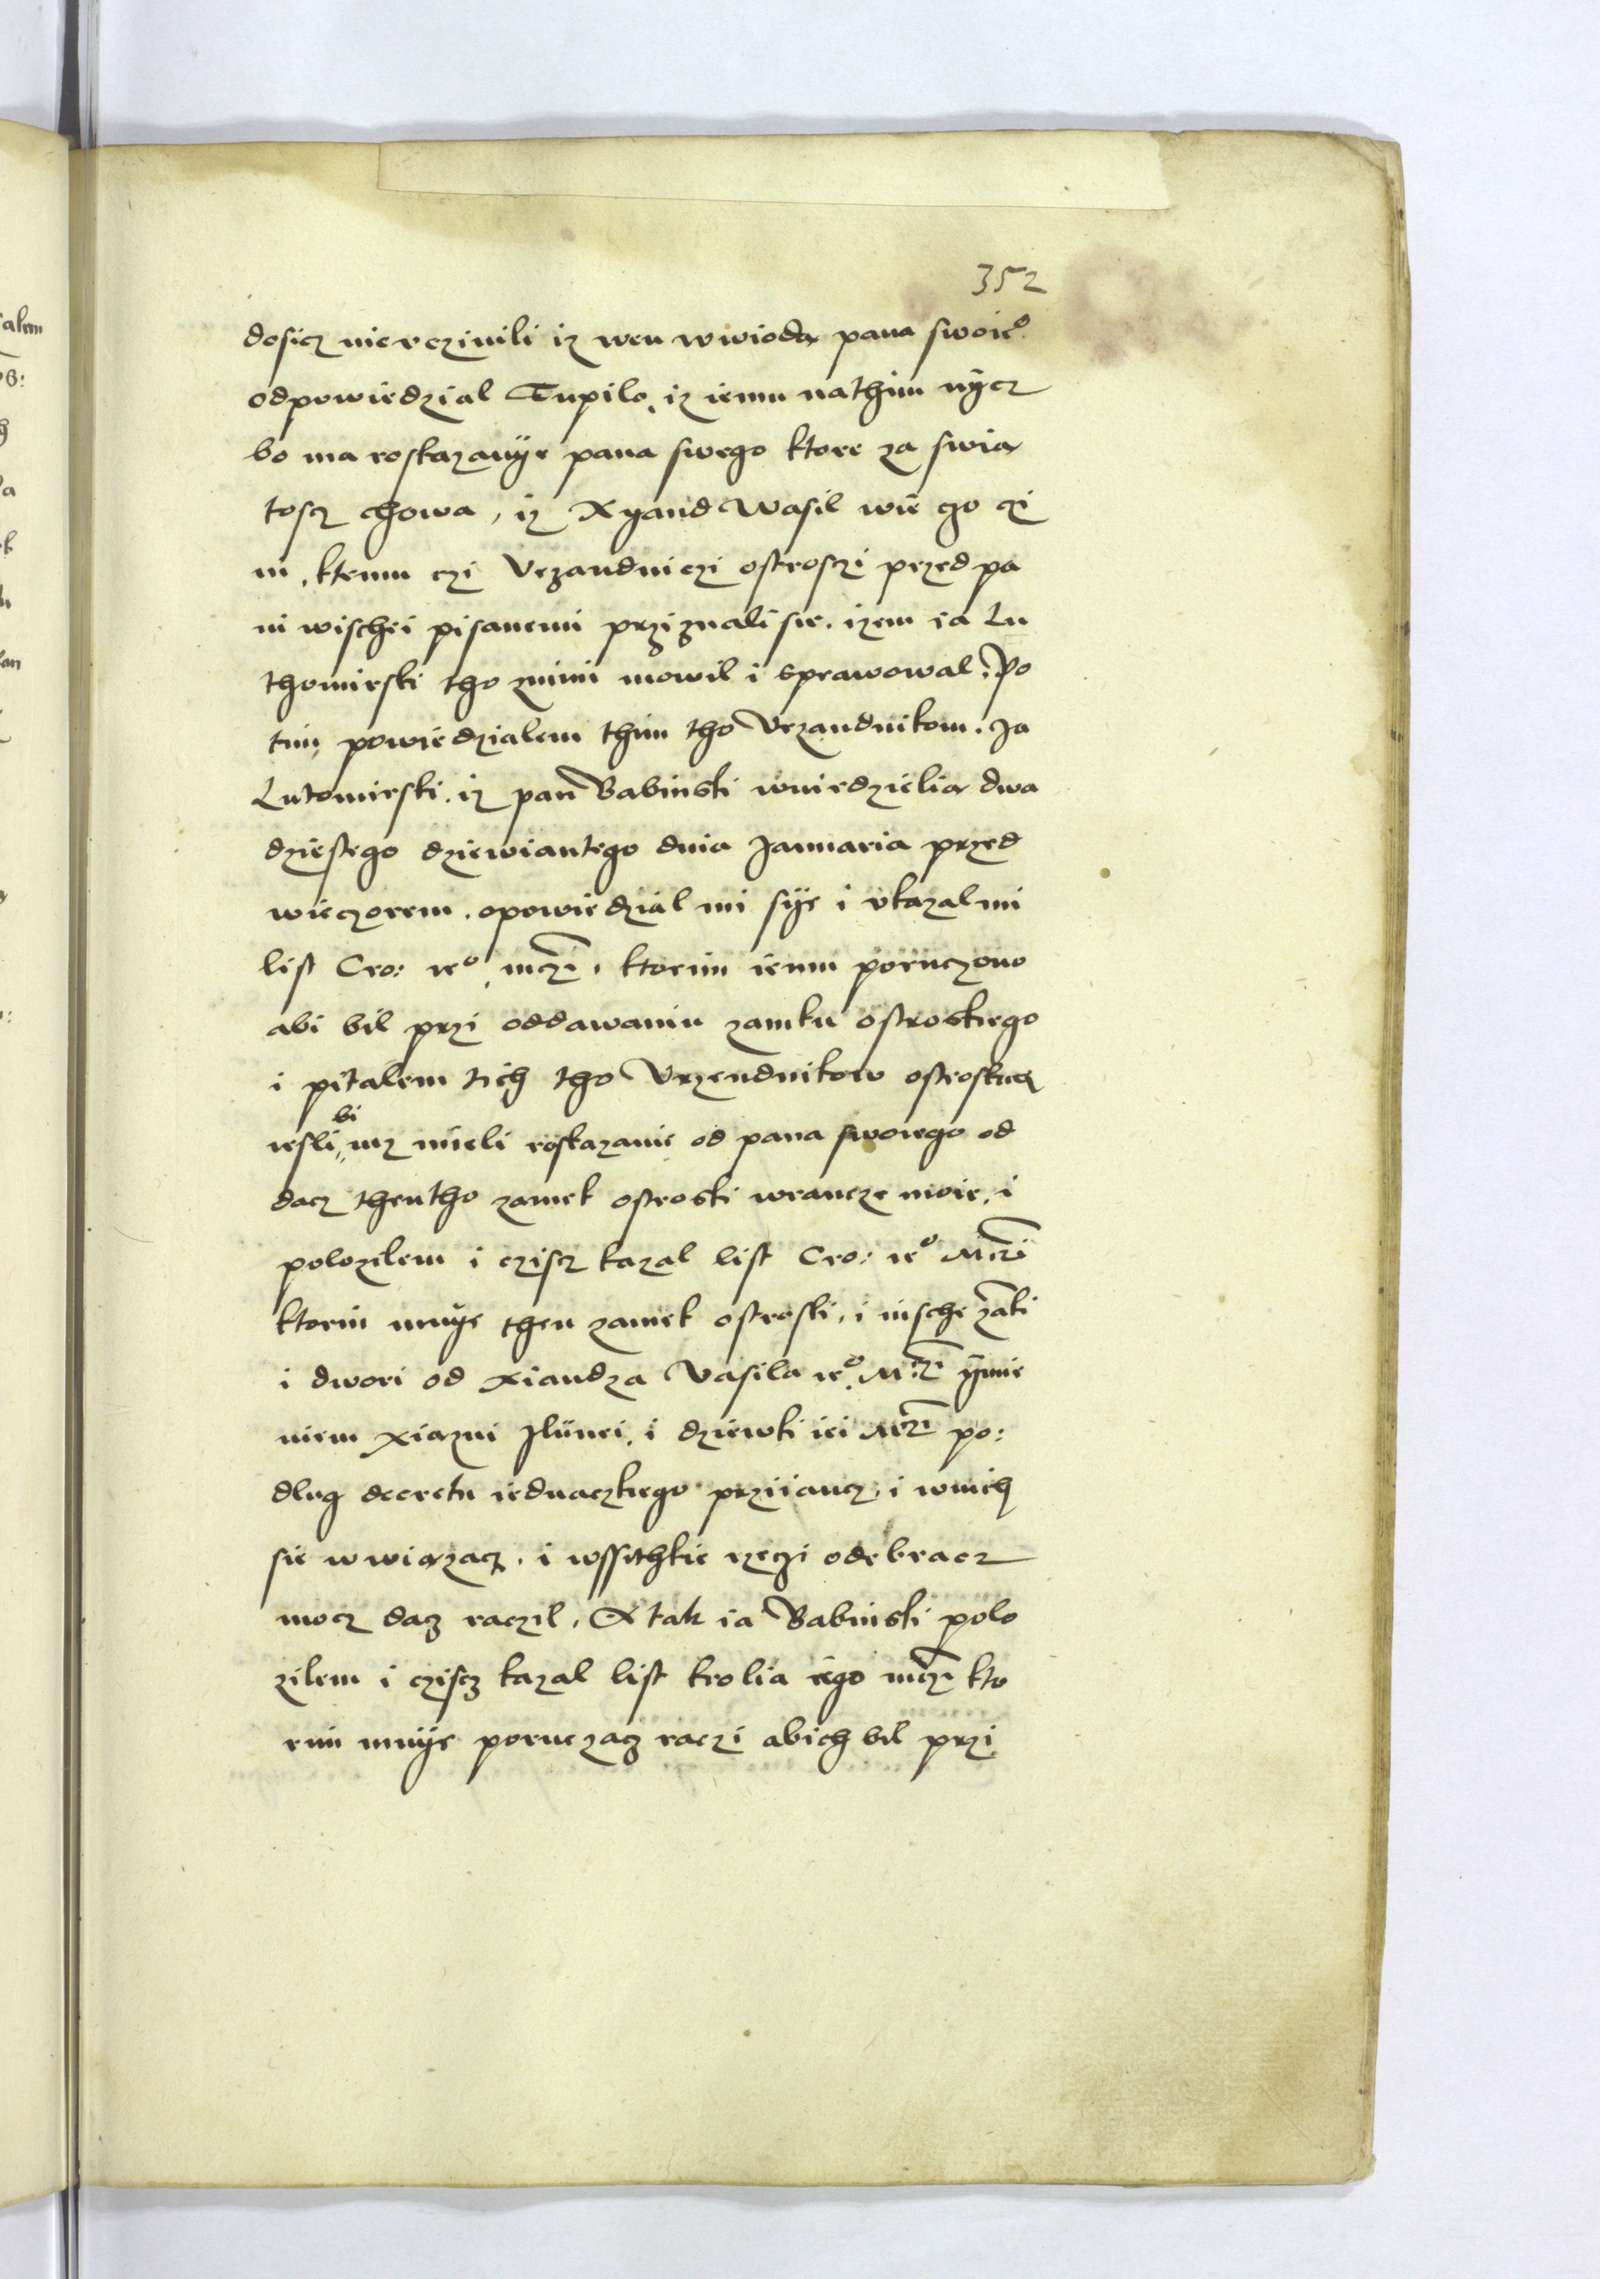 352
dosicz nie vczinili iz wen wwioda pana swoie°
odpowiedzial Tupilo, iz iemu nathim nÿcz
bo ma roskazanÿe pana swego ktore za swia
toscz chowa, iz Xyand Wasil wie czo czi
ni, ktemu czi Vrzandniczi ostrosczi przed pa
ni wischei pisanemi prziznali sie. izem ia Lu
thomirski tho znimi mowil i sprawowal. Po
tim powiedzialem thim tho Vrzandnikom. Ja
Lutomirski. iz pan Babinski wniedzielia dwa
dziestego dziewiantego dnia Januaria przed
wieczorem. opowiedzial mi sÿe i vkazal mi
list Cro: ie° mczi, ktorim iemu poruczono
abi bil przi oddawaniu zamku ostroskiego
i pitalem tich tho Vrzendnikow ostroskich
iesli bi niz mieli roskazanie od pana swoiego od
dacz thentho zamek ostroski wrancze moie, i
polozilem i cziscz kazal list Cro: ie° Mczi
ktorim mnÿe then zamek ostroski, i insche zaki
i dwori od Xiandza Vasila ie° Mczi ÿmie
niem xiazni Ilÿnei, i dziewki iei Mczi po:
dlug decretu iednaczkiego prziiancz, i wnich
sie wwiazacz, i wssithkie rzeczi odebracz
mocz dacz raczil, A tak ia Babinski polo
zilem i cziscz kazal list krolia iego mczi kto
rim mnÿe poruczacz raczi abich bil przi